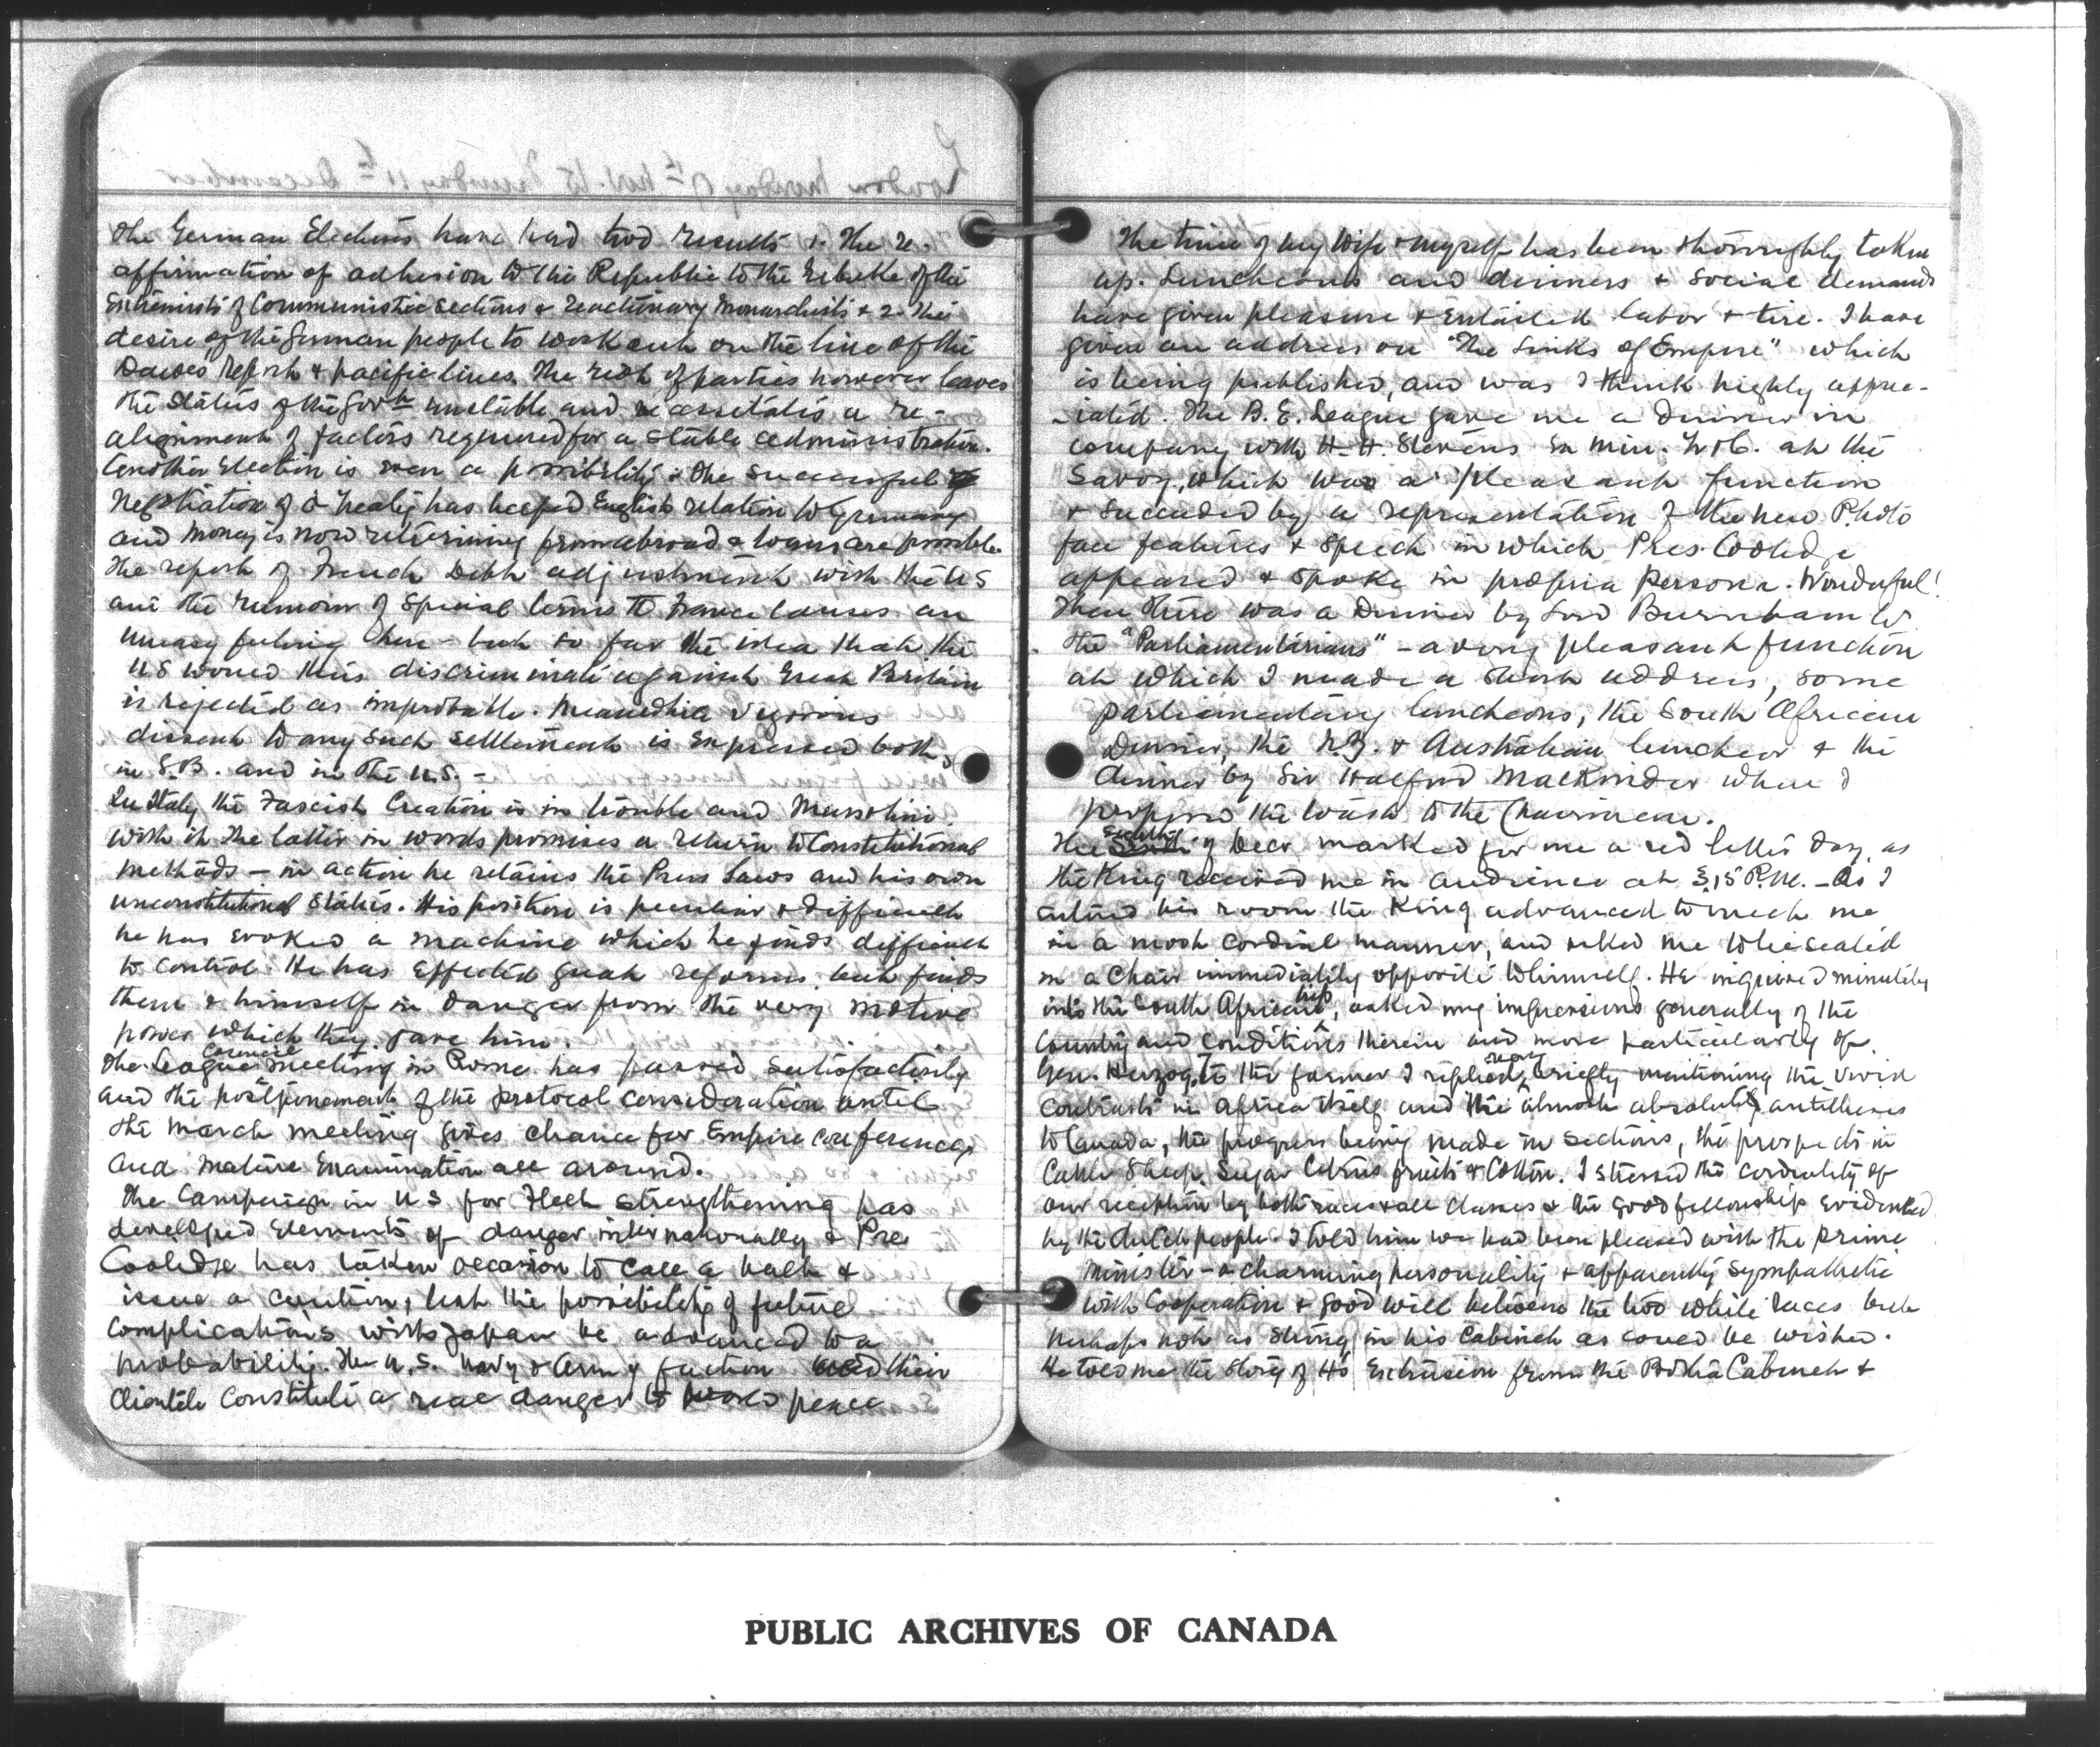 The German Elections have had two results 1. The re-
affirmation of adhesion to the Republic to the rebuke of the
extremists of Communistic sections & reactionary Monarchists & 2. The
desire of the German people to work out on the line of the
Dawes Report & pacific lines. The result of parties however leaves
the status of the Govt unstable and necessitates a re-
alignment of factors required for a stable administration.
Another election is even a possibility. The successful
Negotiation of a treaty has helped English relation to Germany
and money is now returning from abroad & loans are possible.
The report of French Debt adjustment with the U S
and the rumour of special terms to France causes an
uneasy feeling here - but so far the idea that the
U S would thus discriminate against Great Britain
is rejected as improbable. Meanwhile vigorous
dissent to any such settlement is expressed both
in G.B. and in the U.S. -
In Italy the Fascist Creation is in trouble and Mussolini
with it. The latter in words promises a return to Constitutional
methods - in action he retains the Press Laws and his own
unconstitutional status. His position is peculiar & difficult
he has evoked a machine which he finds difficult
to control. He has effected great reforms but finds
them & himself in danger from the very motive
power which they gave him.
The League Council meeting in Rome has passed satisfactorily
and the postponement of the protocol consideration until
the March meeting gives chance for Empire conference
and mature examination all around.
The Campaign in U S for Fleet strengthening has
developed elements of danger internationally & Pres
Coolidge has taken occasion to call a halt &
issue a caution, lest the possibility of future
complications with Japan be advanced to a
probability. The U.S. Navy & Army faction and their
Clientele constitute a real danger to world peace
The time of my Wife & myself has been thoroughly taken
up. Luncheons and dinners & social demands
have given pleasure & entailed labor & tire. I have
given an address on "The Links of Empire" which
is being published, and was I think highly appre-
-iated. The B. E. League gave me a dinner in
company with H. H. Stevens Ex Min. T & C. at the
Savoy, which was a pleasant function
& succeeded by a representation of the new Photo
face features & speech in which Pres. Coolidge
appeared & spoke in propria persona. Wonderful!
Then there was a Dinner by Lord Burnham to
the "Parliamentarians" - a very pleasant function
at which I made a short address, some
parliamentary luncheons, the South African
Dinner, the N.Z. & Australian luncheon & the
dinner by Sir Halford Mackinder where I
proposed the toast to the Chairman.
The eighth of Decr marked for me a red letter day, as
the King received me in audience at 5.15 P.M. - As I
entered his room the King advanced to meet me
in a most cordial manner, and asked me to be seated
in a chair immediately opposite to himself. He inquired minutely
into the South African trip, asked my impressions generally of the
Country and conditions therein and more particularly of
Gen. Herzog. To the former I replied very briefly mentioning the vivid
contrasts in Africa itself and the almost absolute antitheses
to Canada, the progress being made in sections, the prospects in
Cattle Sheep, Sugar Citrus fruits & Cotton. I stressed the cordiality of
our reception by both races & all classes & the good fellowship evidenced
by the dutch people. I told him we had been pleased with the Prime
Minister - a charming personality & apparently sympathetic
with Cooperation & good will between the two white races but
perhaps not as strong in his Cabinet as could be wished.
He told me the story of H's Extrusion from the Botha Cabinet &
PUBLIC ARCHIVES OF CANADA